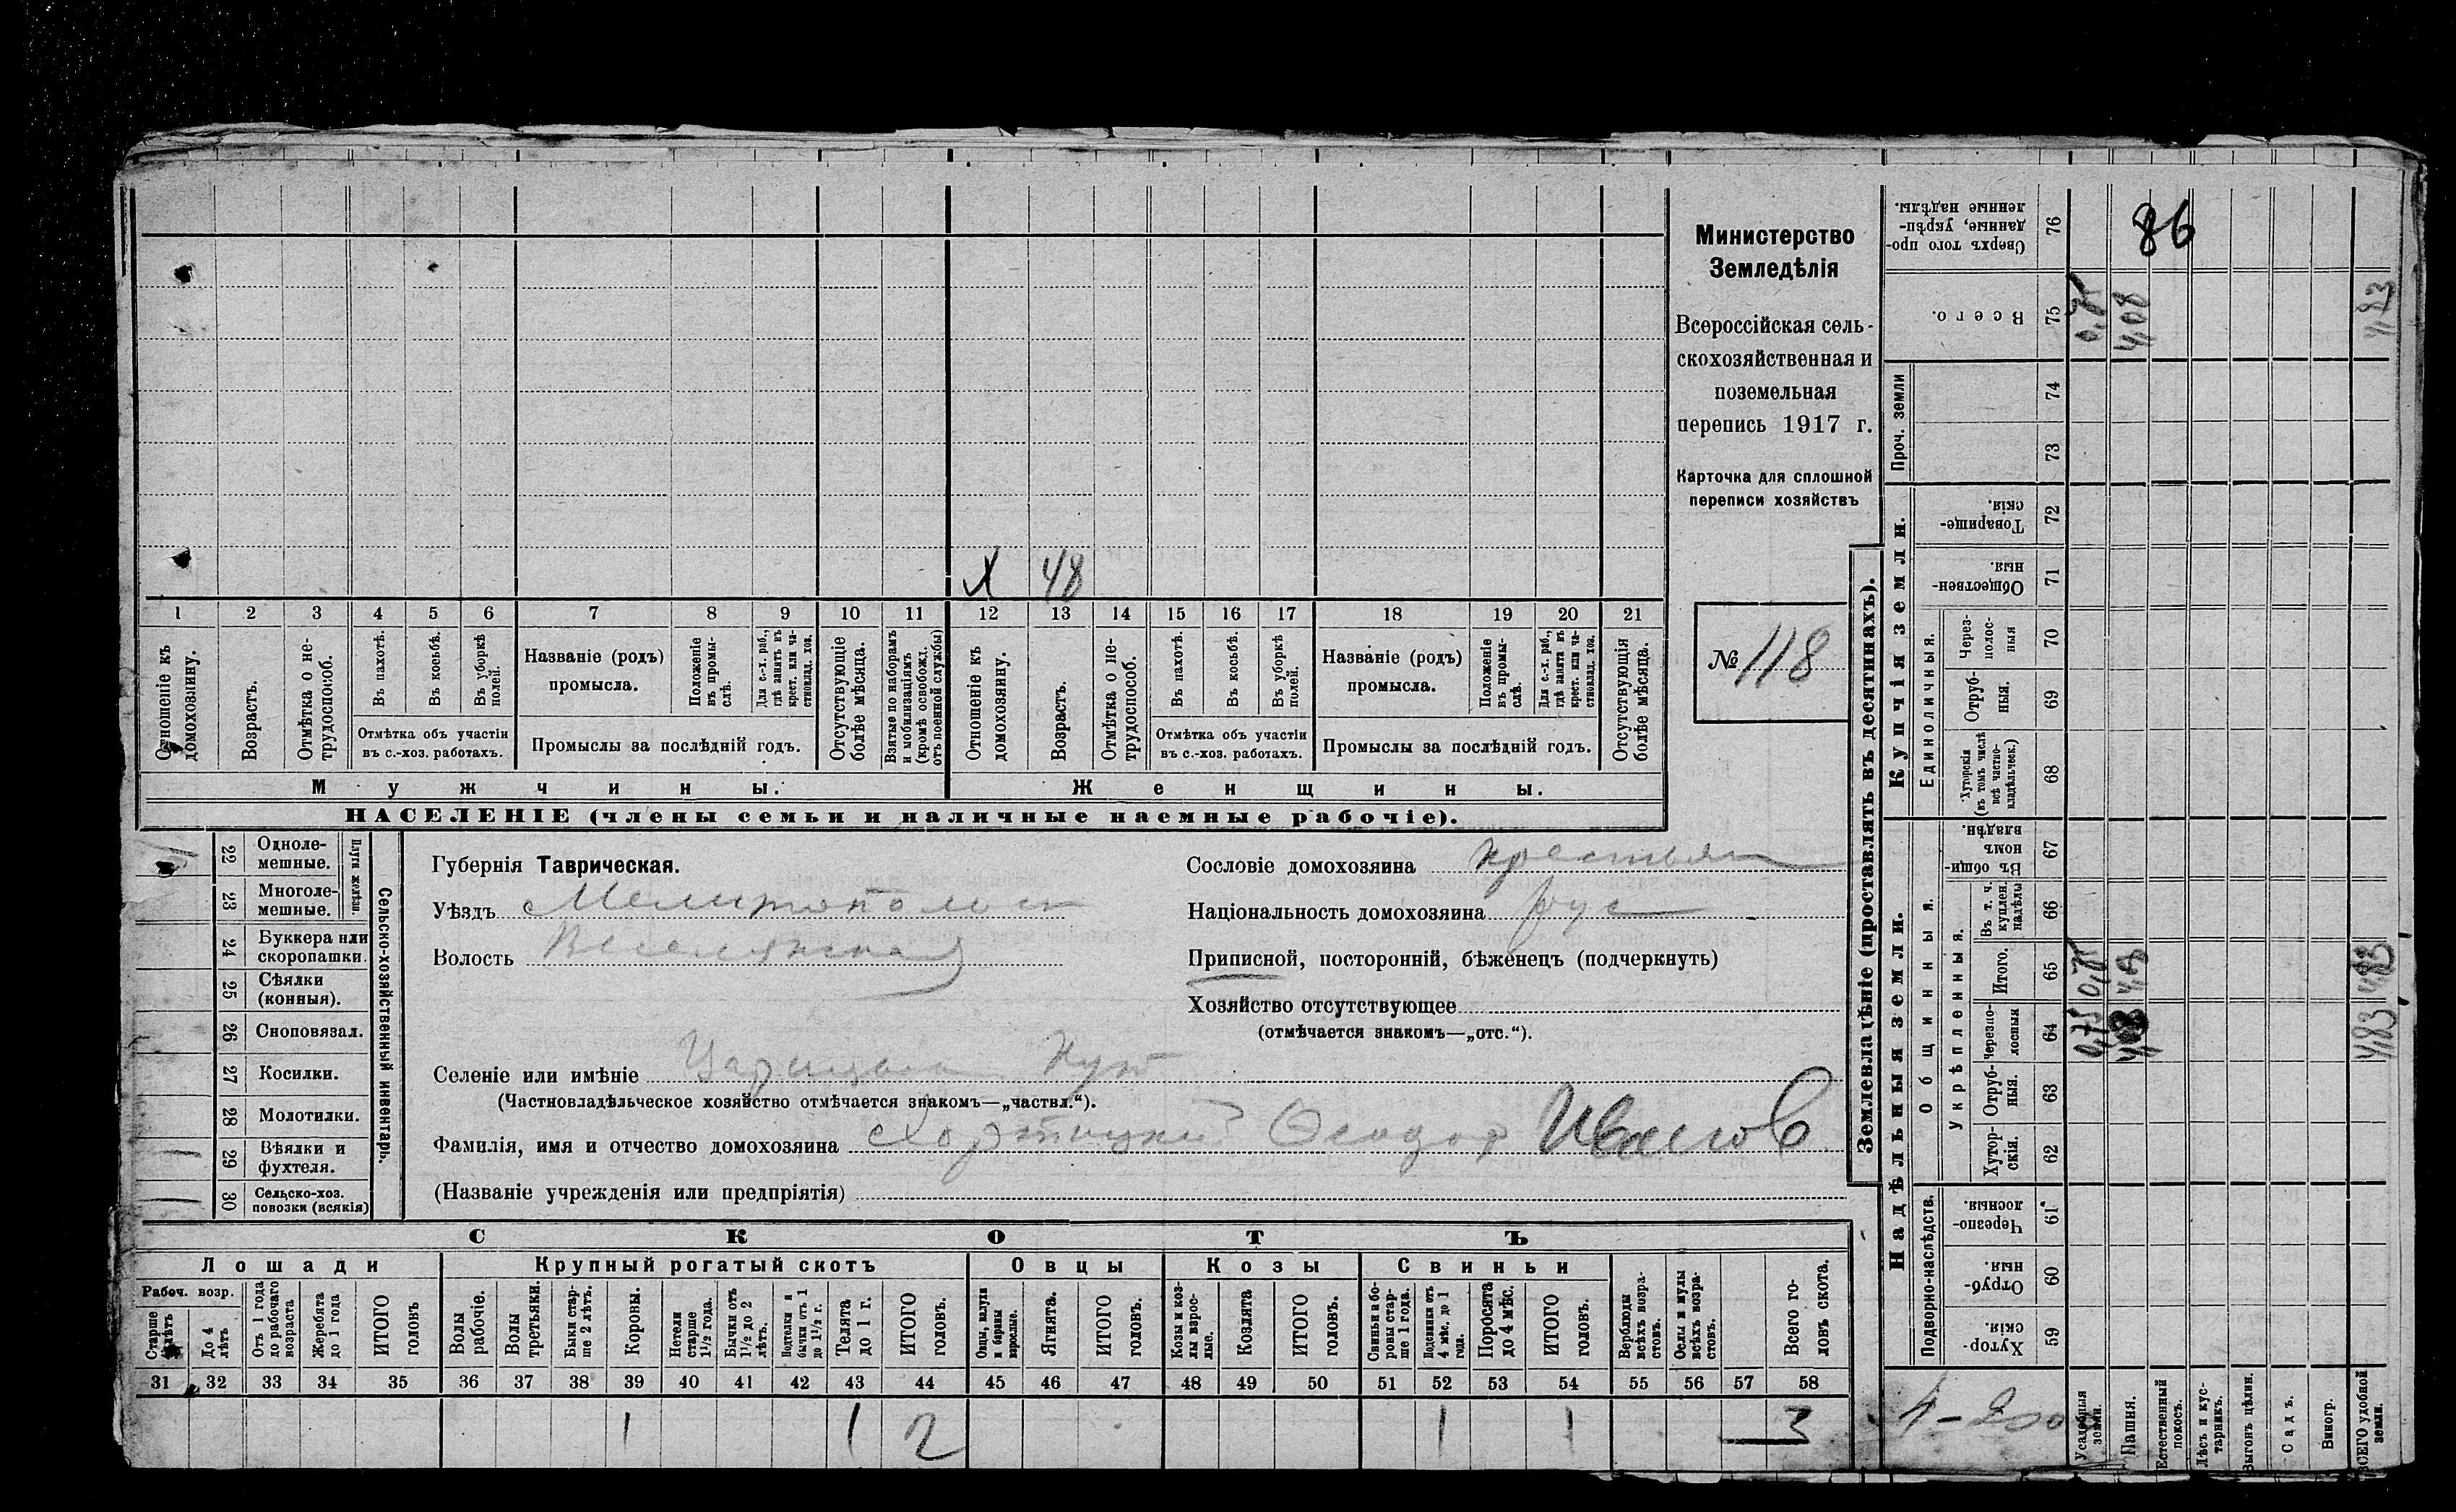 Министерство
Земледѣлія
Всероссійская сель-
скохозяйственная и
поземельная
перепись 1917 г.
Карточка для сплошной
переписи хозяйствъ
№ 118
X 48
1 2 3 4 5 6 7 8 9 10 11 12 13 14 15 16 17 18 19 20 21
Отношеніе къ домохозяину.
Возрастъ.
Отмѣтка о не-трудоспособ.
Въ пахотѣ.
Въ косьбѣ.
Въ уборкѣ полей.
Отмѣтка объ участіи
въ с.-хоз. работахъ.
Названіе (родъ)
промысла.
Положеніе въ промы-слѣ.
Для с.-х. раб., гдѣ занятъ въ крест. или ча-стновлад. хоз.
Промыслы за послѣдній годъ.
Отсутствующіе болѣе мѣсяца.
Взятые по наборамъ и мобилизаціямъ (кромѣ освобожд. отъ военной службы)
Отношеніе къ домохозяину.
Возрастъ.
Отмѣтка о не-трудоспособ.
Въ пахотѣ.
Въ косьбѣ.
Въ уборкѣ полей.
Отмѣтка объ участіи
въ с.-хоз. работахъ.
Названіе (родъ)
промысла.
Положеніе въ промы-слѣ.
Для с.-х. раб., гдѣ занята въ крест. или ча-стновлад. хоз.
Промыслы за послѣдній годъ.
Отсутствующія болѣе мѣсяца.
Мужчины. Женщины.
НАСЕЛЕНІЕ (члены семьи и наличные наемные рабочіе).
22 Одноле-мешные.
23 Многоле-мешные.
Плуги желѣзн.
24 Буккера или скоропашки.
25 Сѣялки (конныя).
26 Сноповязал.
27 Косилки.
28 Молотилки.
29 Вѣялки и фухтеля.
30 Сельско-хоз. повозки (всякія)
Сельско-хозяйственный инвентарь.
Губернія Таврическая.
Уѣздъ Мелитопольск
Волость Веселянская
Селеніе или имѣніе Царицын Кут
(Частновладѣльческое хозяйство отмѣчается знакомъ—„частвл.“).
Фамилія, имя и отчество домохозяина Хортицкий Феодор Иванов
(Названіе учрежденія или предпріятія)
Сословіе домохозяина крестьян
Національность домохозяина рус
Приписной, посторонній, бѣженецъ (подчеркнуть)
Хозяйство отсутствующее
(отмѣчается знакомъ—„отс.“).
СКОТЪ
Лошади Крупный рогатый скотъ Овцы Козы Свиньи
Рабоч. возр.
Старше 4 лѣтъ
До 4 лѣтъ
Отъ 1 года до рабочаго возраста
Жеребята до 1 года
ИТОГО головъ
Волы рабочіе.
Волы третьяки.
Быки стар-ше 2 лѣтъ.
Коровы.
Нетели старше 1½ года.
Бычки отъ 1½ до 2 лѣтъ.
Подтелки и бычки отъ 1 до 1½ г.
Телята до 1 г.
ИТОГО головъ.
Овцы, валухи и бараны взрослые.
Ягнята.
ИТОГО головъ.
Козы и коз-лы взрос-лые.
Козлята
ИТОГО головъ.
Свиньи и бо-ровы стар-ше 1 года.
Подсвинки отъ 4 мѣс. до 1 года.
Поросята до 4 мѣс.
ИТОГО головъ.
Верблюды всѣхъ возра-стовъ.
Ослы и мулы всѣхъ возра-стовъ.
Всего го-ловъ скота.
31 32 33 34 35 36 37 38 39 40 41 42 43 44 45 46 47 48 49 50 51 52 53 54 55 56 57 58
1 1 2 1 1 3
Землевладѣніе (проставлять въ десятинахъ).
Надѣльныя земли. Купчія земли. Проч. земли
Подворно-наслѣдств.
Общинныя.
Укрѣпленныя.
Единоличныя.
Сверхъ того про-данные, укрѣп-ленные надѣлы. 76 86
Всего. 75 0,75 4,08 4,83
74
73
Товарище-скія. 72
Обществен-ныя. 71
Через-полос-ныя 70
Отруб-ныя. 69
Хуторскія (въ томъ числѣ всѣ частно-владѣльческ.) 68
Въ общин-номъ владѣн. 67
Въ т. ч. куплен. надѣлы 66
Итого. 65 0,75 4,08 4,83
Черезпо-лосныя 64 0,75 4,08 4,83
Отруб-ныя. 63
Хутор-скія. 62
Черезпо-лосныя. 61
Отруб-ныя. 60
Хутор-скія. 59
Усадебныя земли.
Пашня.
Естественный покосъ.
Лѣсъ и кус-тарникъ.
Выгонъ цѣлин.
Садъ.
Виногр.
ВСЕГО удобной земли.